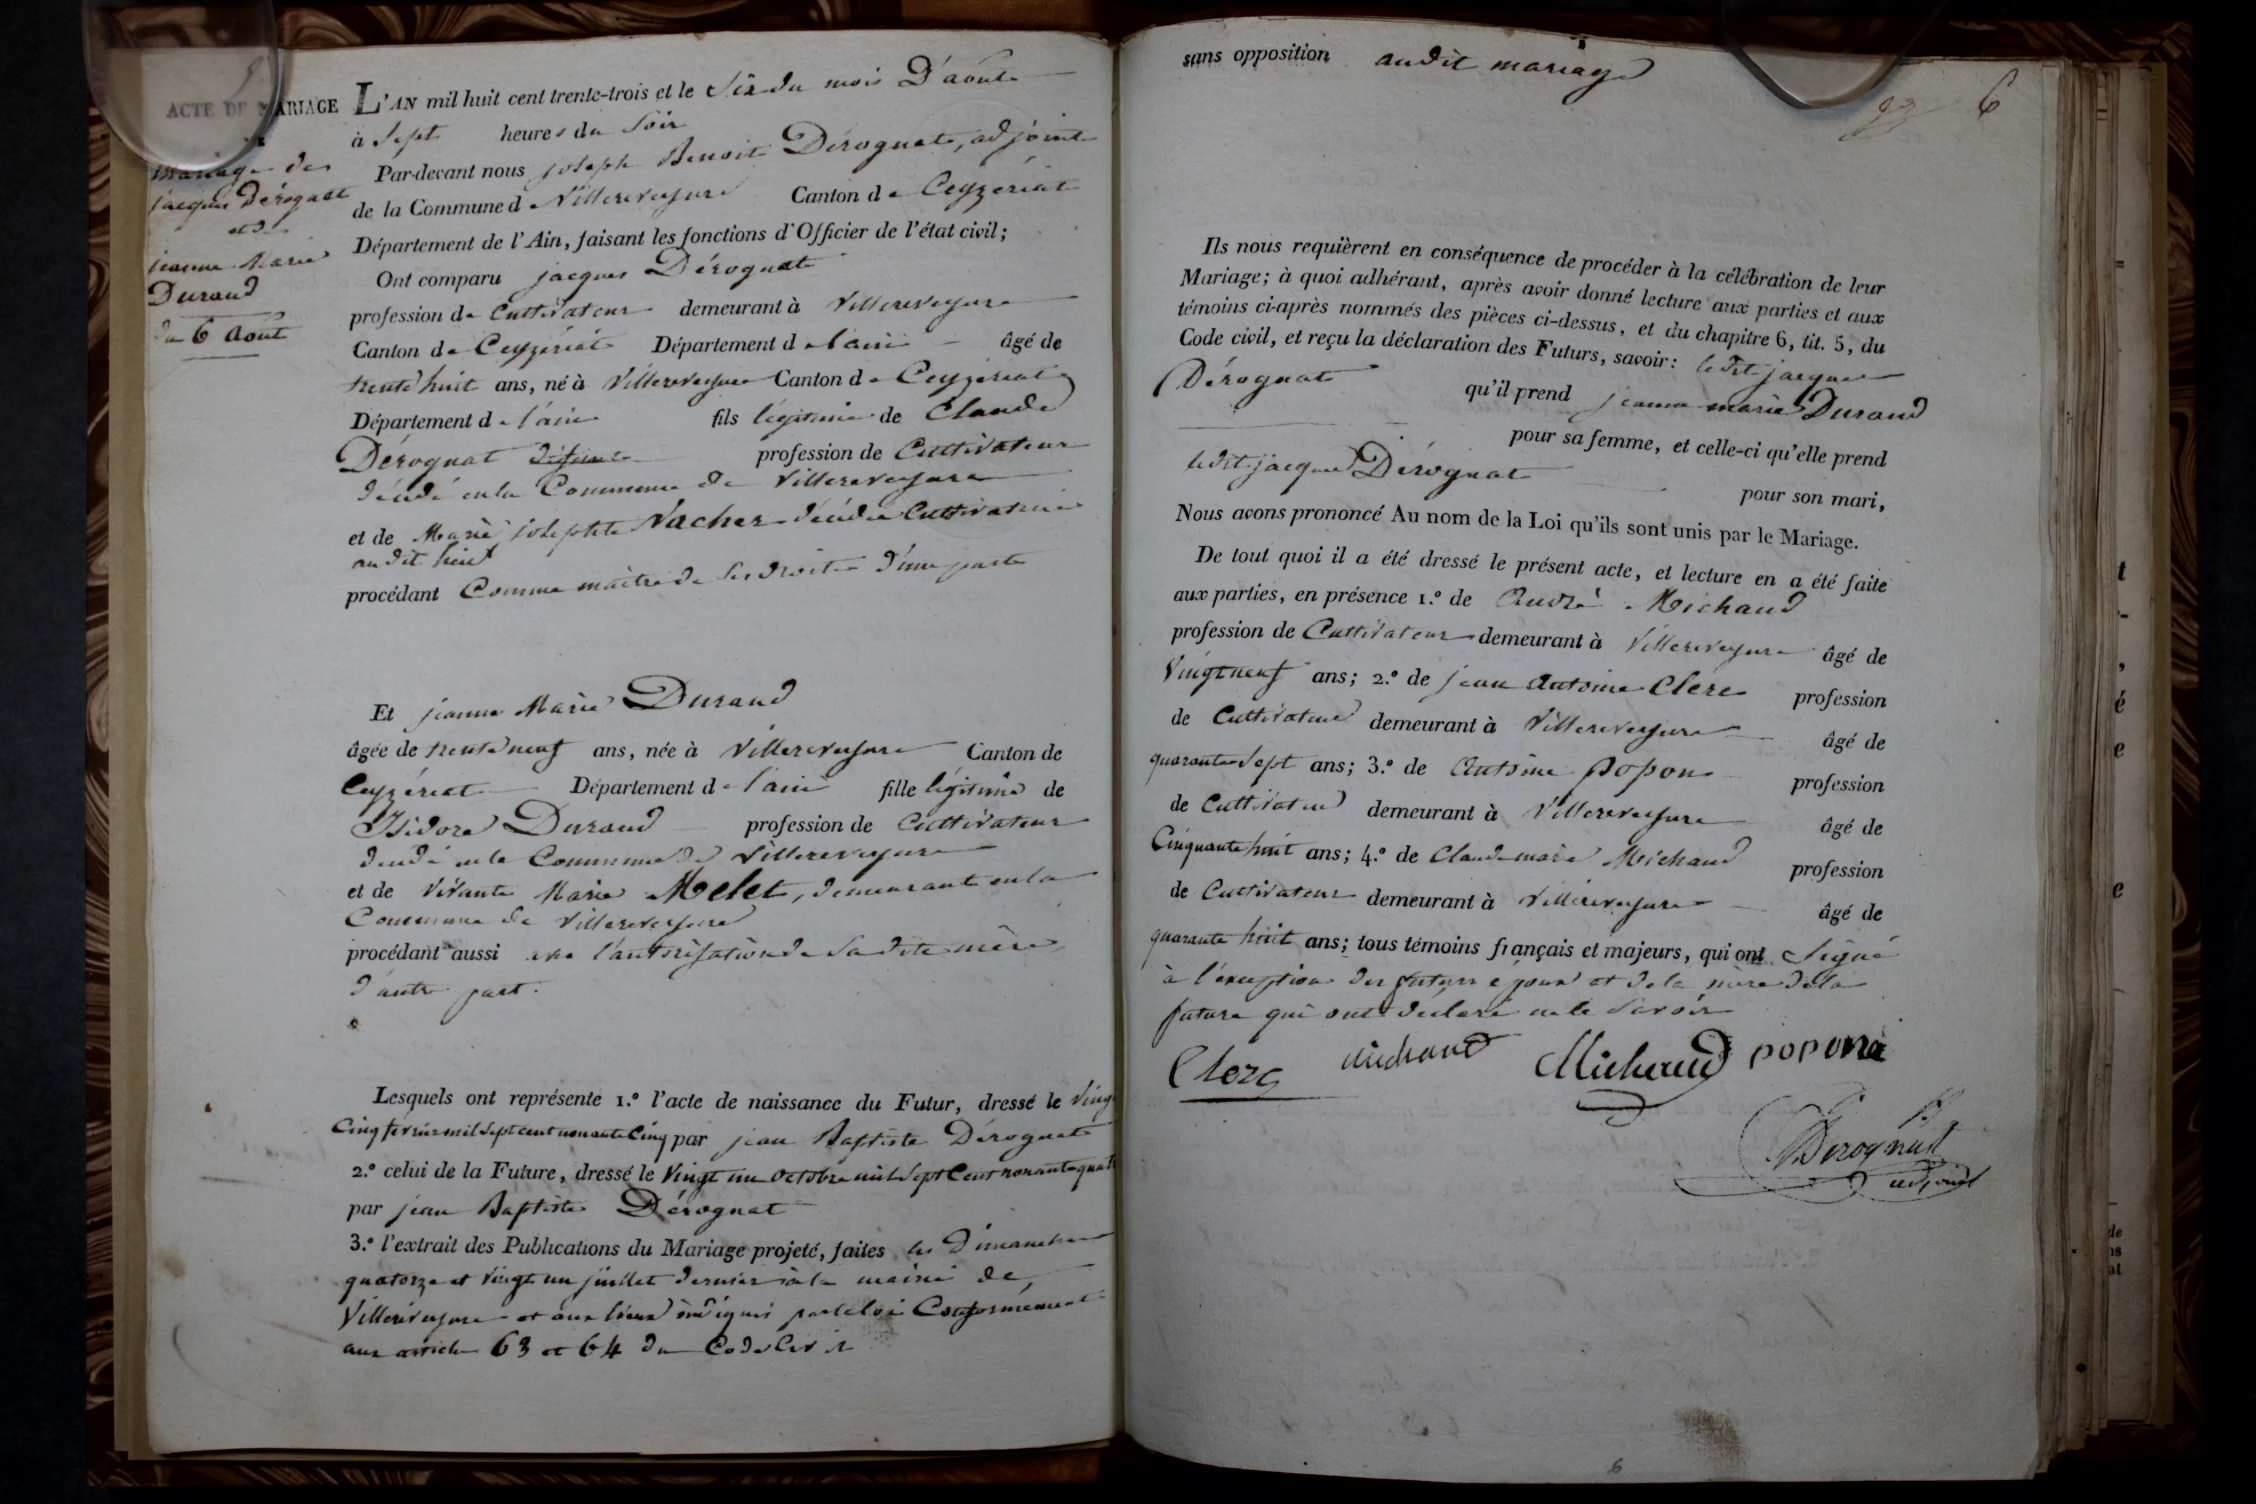 ACTE DE MARIAGE
mariage de
jacques Dérognat
et de
jeanne Marie
Durand
du 6 aout
L'AN mil huit cent trente-trois et le Six du mois D'aout
à Sept heures du Soir
Par-devant nous joseph Benoit Dérognat, adjoint
de la Commune de Villereversure Canton de Ceyzériat
Département de l'Ain, faisant les fonctions d'Officier de l'état civil;
Ont comparu jacques Dérognat
profession de Cultivateur demeurant à Villereversure
Canton de Ceyzériat Département de l'ain âgé de
trente huit ans, né à Villereversure Canton de Ceyzériat
Département de l'ain fils légitime de Claude
Dérognat défunt profession de Cultivateur
décédé en la Commune de Villereversure
et de Marie josephte Vacher décédée Cultivatrice
au dit lieu
procédant Comme maitre de Ses droits d'une part
Et jeanne Marie Durand
âgée de trente neuf ans, née à Villereversure Canton de
Ceyzériat Département de l'ain fille légitime de
Isidore Durand profession de Cultivateur
décédé en la Commune de Villereversure
et de vivante Marie Melet, demeurant en la
Commune de Villereversure
procédant aussi avec l'autorisation de Sa dite mère
d'autre part.
Lesquels ont représenté 1.º l'acte de naissance du Futur, dressé le Vingt
Cinq fevrier mil Sept cent nonante Cinq par jean Baptiste Dérognat
2.º celui de la Future, dressé le Vingt un octobre mil Sept Cent nonante quatre
par jean Baptiste Dérognat
3.º l'extrait des Publications du Mariage projeté, faites les Dimanches
quatorze et Vingt un juillet dernier à la mairie de
Villereversure et aux lieux indiqués par la loi Conformément
aux article 63 et 64 du Code Civil
sans opposition audit mariage
6
Ils nous requièrent en conséquence de procéder à la célébration de leur
Mariage; à quoi adhérant, après avoir donné lecture aux parties et aux
témoins ci-après nommés des pièces ci-dessus, et du chapitre 6, tit. 5, du
Code civil, et reçu la déclaration des Futurs, savoir: ledit jacques
Dérognat qu'il prend jeanne marie Durand
pour sa femme, et celle-ci qu'elle prend
ledit jacques Dérognat pour son mari,
Nous avons prononcé Au nom de la Loi qu'ils sont unis par le Mariage.
De tout quoi il a été dressé le présent acte, et lecture en a été faite
aux parties, en présence 1.º de André Michaud
profession de Cultivateur demeurant à Villereversure âgé de
Vingt neuf ans; 2.º de jean Antoine Clerc profession
de Cultivateur demeurant à Villereversure âgé de
quarante Sept ans; 3.º de Antoine popon profession
de Cultivateur demeurant à Villereversure âgé de
Cinquante huit ans; 4.º de Claude marie Michaud profession
de Cultivateur demeurant à Villereversure âgé de
quarante huit ans; tous témoins français et majeurs, qui ont Signé
à l'exception des futurs époux et de la mère de la
future qui ont déclaré ne le Savoir
Clerc michaud Michaud popon
Derognat
adjoint
6